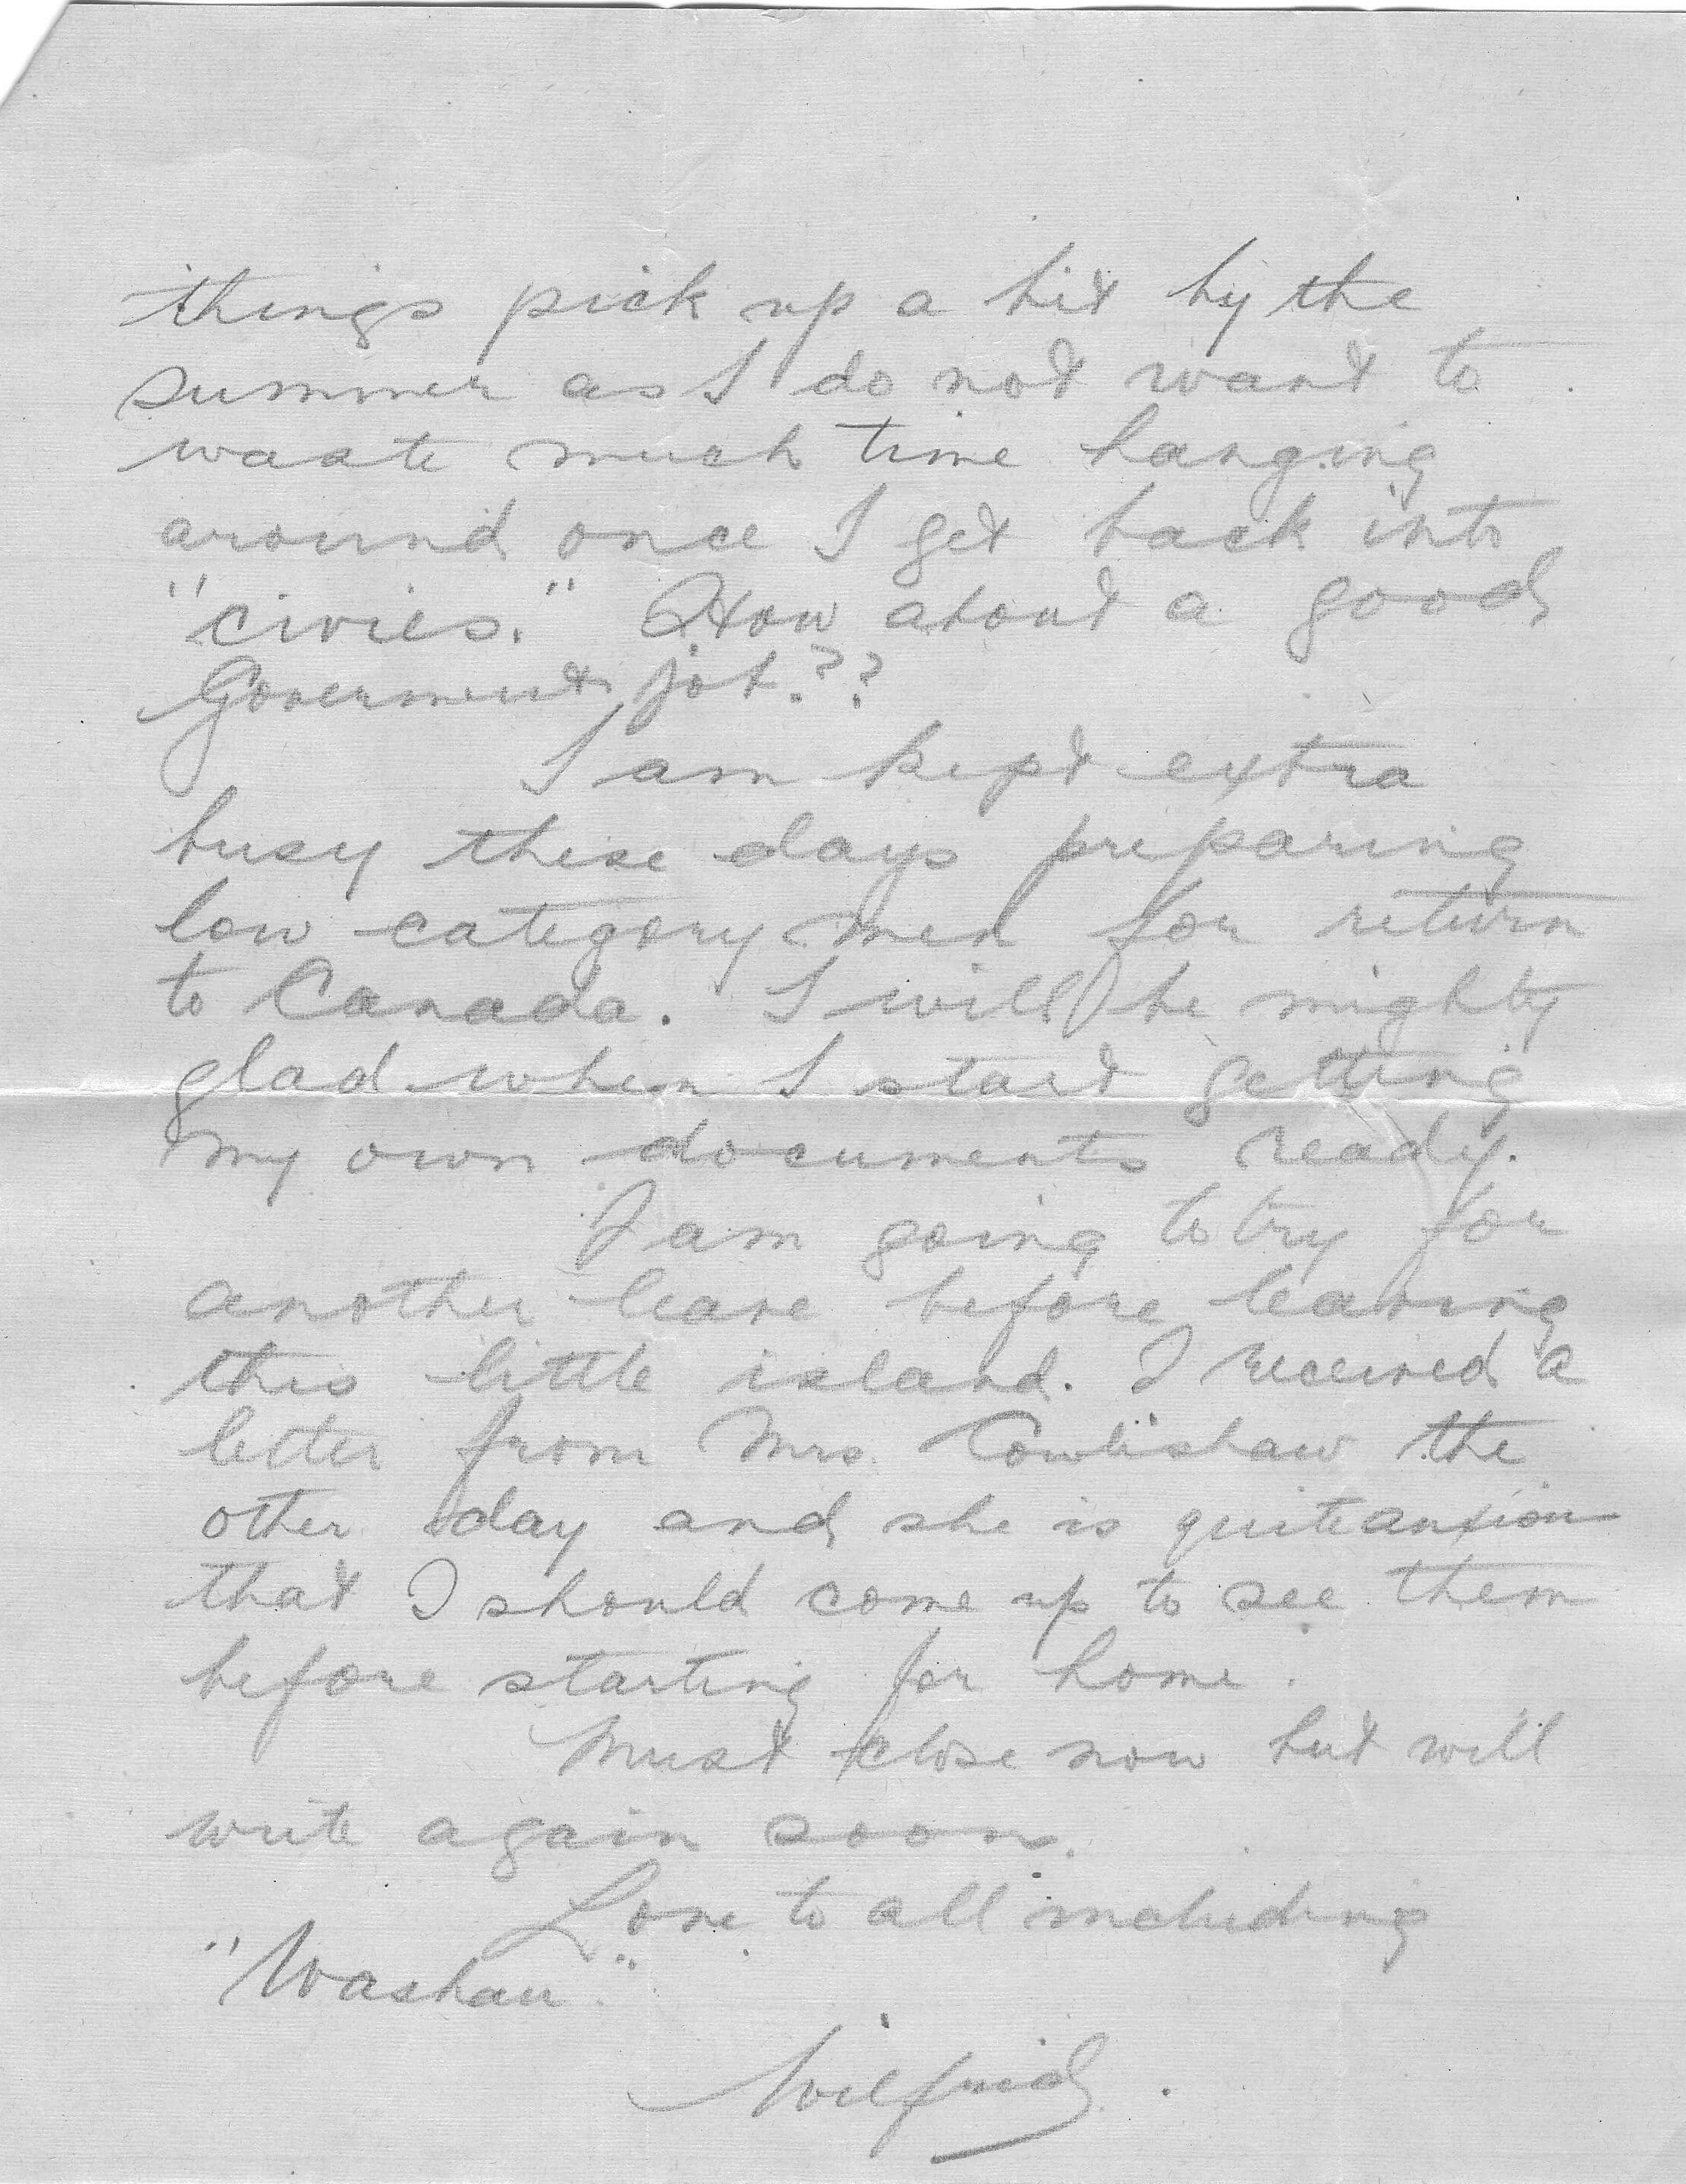 things pick up a bit by the
summer as I do not want to
waste much time hanging
around once I get back into
"civies." How about a good
Government job.??
I am kept extra
busy these days preparing
low category men for return
to Canada. I will be mighty
glad when I start getting
my own documents ready.
I am going to try for
another leave before leaving
this little island. I received a
letter from Mrs. Cowlishaw the
other day and she is quite anxious
that I should come up to see them
before starting for home.
Must close now but will
write again soon.
Love to all including
Wilfrid.